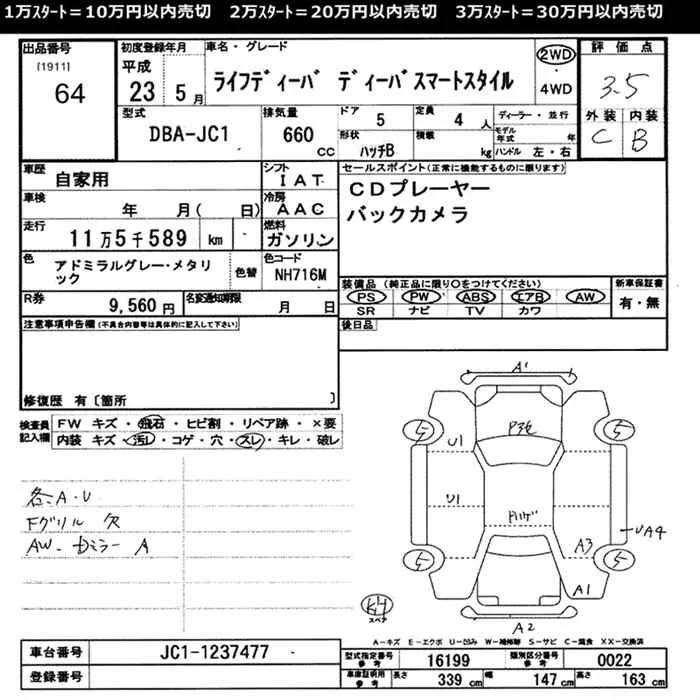 1万ｽﾀｰﾄ＝10万円以内売切 2万ｽﾀｰﾄ＝20万円以内売切 3万ｽﾀｰﾄ＝30万円以内売切
出品番号
[1911]
64
初度登録年月
平成
23 5 月
車名・グレード
ライフディーバ ディーバスマートスタイル
2WD
4WD
評価点
3.5
外装 内装
C B
型式
DBA-JC1
排気量
660 CC
ドア
5
定員
4 人
形状
ハッチB
積載
kg
ディーラー・並行
モデル年式 年
ハンドル 左・右
車歴
自家用
シフト
IAT
車検
年 月( 日)
冷房
AAC
走行
11万5千589 km
燃料
ガソリン
色
アドミラルグレー・メタリ
ック
色替
色コード
NH716M
R券
9,560 円
名変通知期限
月 日
セールスポイント(正常に機能するものに限ります)
CDプレーヤー
バックカメラ
装備品 (純正品に限り○をつけてください)
PS PW ABS エアB AW
SR ナビ TV カワ
新車保証書
有・無
後日品
注意事項申告欄(不具合内容等は具体的に記入して下さい)
修復歴 有〔箇所 〕
検査員
記入欄
FW キズ・飛石・ヒビ割・リペア跡・×要
内装 キズ・汚レ・コゲ・穴・スレ・キレ・破レ
各A・U
Fグリル 欠
AW・ A
A'
5 5
U1
U1
UA4
A3
5 5
A1
A2
スペア
A－キズ E－エクボ U－凹み W－補修跡 S－サビ C－腐食 XX－交換済
車台番号
JC1-1237477
登録番号
型式指定番号
参考
16199
類別区分番号
参考
0022
車庫証明用
参考
長さ 339 cm
幅 147 cm
高さ 163 cm